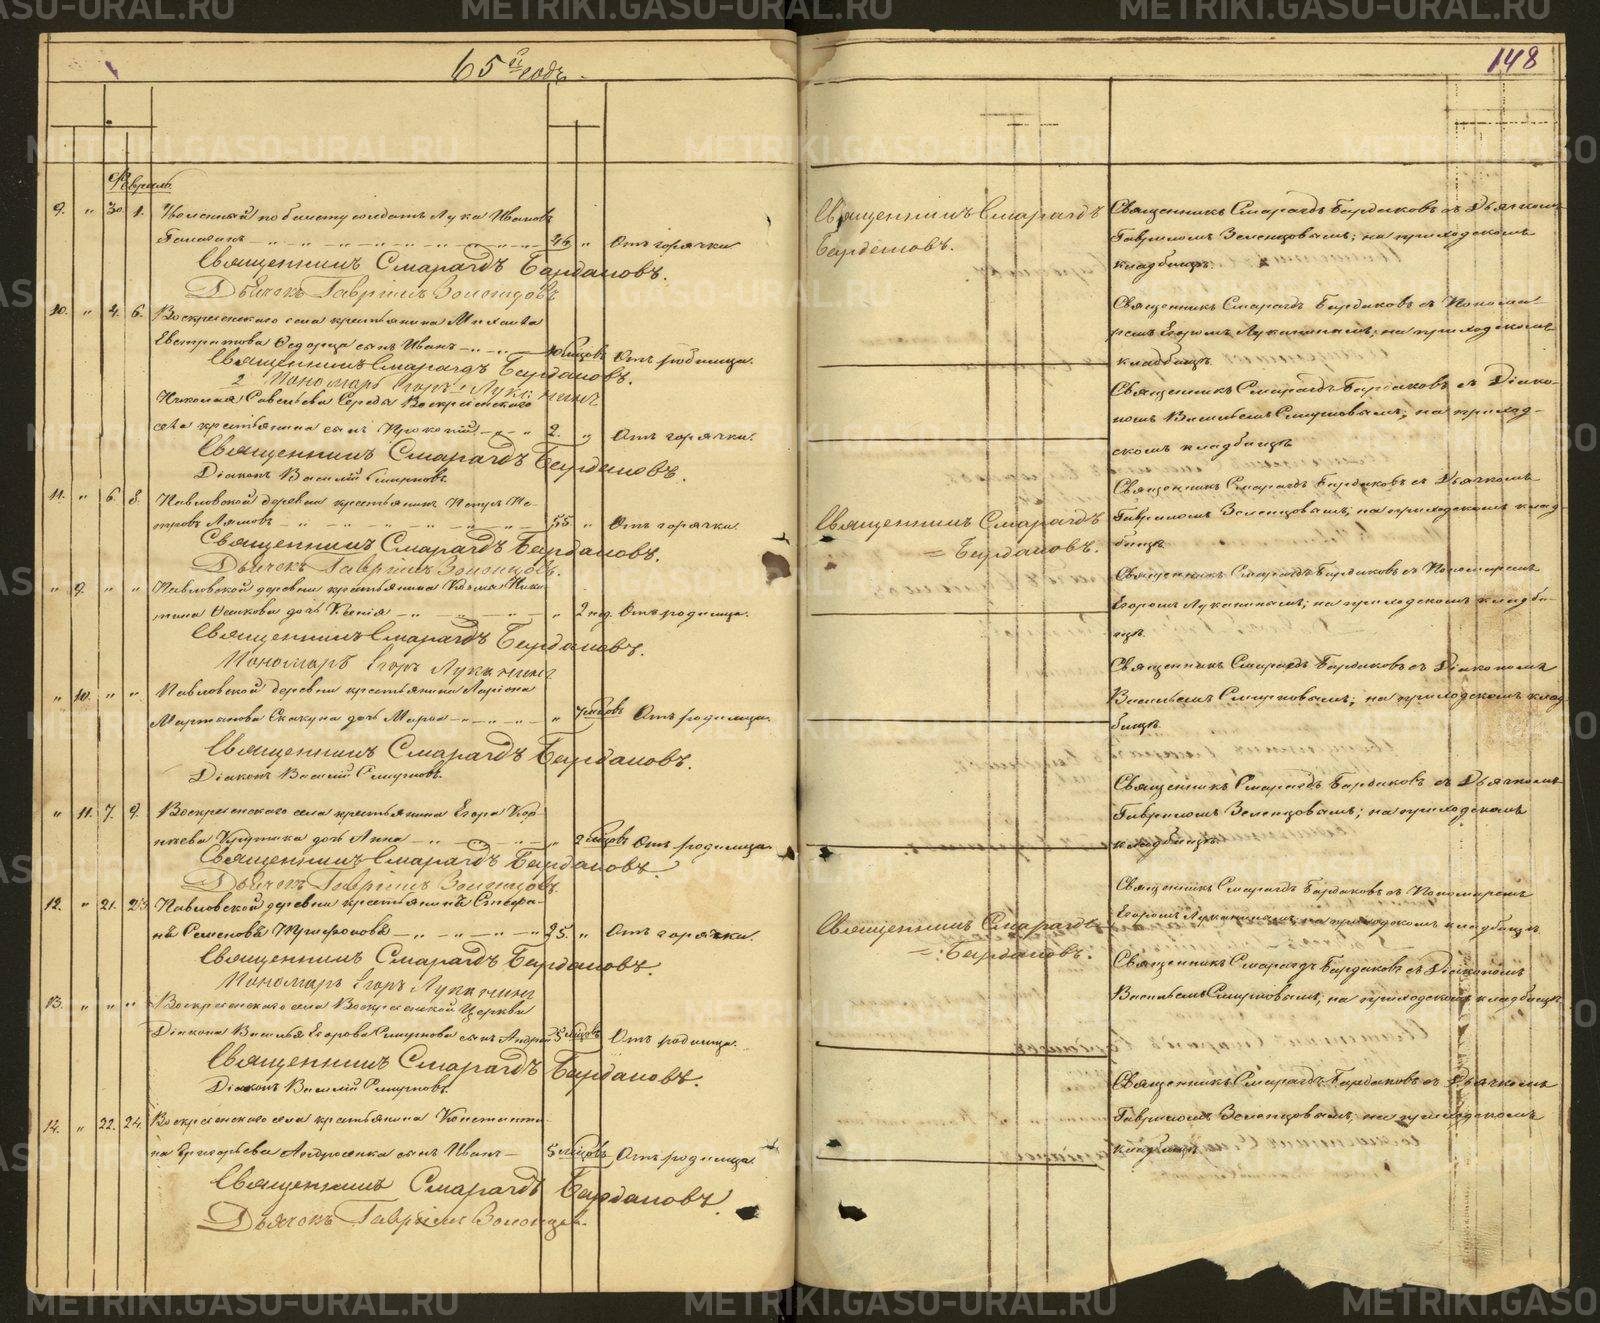 65й годъ.
148
Февраль
9. " 30. 1. Уволенный по билету солдатъ Лука Ивановъ
46 " Отъ горячки
Священникъ Смарагдъ Бардаковъ.
Дьячекъ Гавріилъ Зеленцовъ
10. " 4. 6. Воскресенскаго села крестьянина Михаила
Евстратова сынъ Иванъ Отъ родимца.
Священникъ Смарагдъ Бардаковъ.
Пономарь Егоръ Лукканинъ
Николая Савельева Середы Воскресенскаго
села крестьянина сынъ Прокопій 2. " Отъ горячки.
Священникъ Смарагдъ Бардаковъ.
Діаконъ Василій Смирновъ.
11. " 6. 8. Павловской деревни крестьянинъ Петръ Пе-
тровъ 55 " Отъ горячки.
Священникъ Смарагдъ Бардаковъ.
Дьячекъ Гавріилъ Зеленцовъ.
" 9. " " Павловской деревни крестьянина Козмы Ники-
тина дочь Ксенія " 2 нед. Отъ родимца.
Священникъ Смарагдъ Бардаковъ.
Пономарь Егоръ Луканинъ
" 10. " " Павловской деревни крестьянина Ларіона
Мартынова дочь Марѳа " 7 мѣсцовъ Отъ родимца.
Священникъ Смарагдъ Бардаковъ.
Діаконъ Василій Смирновъ.
" 11. 7. 9. Воскресенскаго села крестьянина Егора Кор-
нѣева дочь Анна " 2 мѣсцовъ Отъ родимца.
Священникъ Смарагдъ Бардаковъ.
Дьячекъ Гавріилъ Зеленцовъ.
12. " 21. 23. Павловской деревни крестьянинъ Стефа-
нъ Семеновъ 25. " Отъ горячки.
Священникъ Смарагдъ Бардаковъ.
Пономарь Егоръ Луканинъ
13. " " " Воскресенскаго села Воскресенской Церкви
Діакона Василья Егорова Смирнова сынъ Андрей 5 мѣсцовъ Отъ родимца.
Священникъ Смарагдъ Бардаковъ.
Діаконъ Василій Смирновъ.
14. " 22. 24. Воскресенскаго села крестьянина Константи-
на Григорьева Андросенка сынъ Иванъ 5 мѣсцовъ Отъ родимца.
Священникъ Смарагдъ Бардаковъ.
Дьячекъ Гавріилъ Зеленцовъ.
Священникъ Смарагдъ
Бардаковъ.
Священникъ Смарагдъ
Бардаковъ.
Священникъ Смарагдъ
Бардаковъ.
Священникъ Смарагдъ Бардаковъ съ Дьячкомъ
Гавріиломъ Зеленцовымъ; на приходскомъ
кладбищѣ.
Священникъ Смарагдъ Бардаковъ съ Понома-
ремъ Егоромъ Луканинымъ; на приходскомъ
кладбищѣ.
Священникъ Смарагдъ Бардаковъ съ Діако-
номъ Васильемъ Смирновымъ; на приход-
скомъ кладбищѣ
Священникъ Смарагдъ Бардаковъ съ Дьячкомъ
Гавріиломъ Зеленцовымъ; на приходскомъ клад-
бищѣ.
Священникъ Смарагдъ Бардаковъ съ Пономаремъ
Егоромъ Луканинымъ; на приходскомъ кладби-
щѣ.
Священникъ Смарагдъ Бардаковъ съ Діакономъ
Васильемъ Смирновымъ; на приходскомъ клад-
бищѣ.
Священникъ Смарагдъ Бардаковъ съ Дьячкомъ
Гавріиломъ Зеленцовымъ; на приходскомъ
кладбищѣ.
Священникъ Смарагдъ Бардаковъ съ Пономаремъ
Егоромъ Луканинымъ; на приходскомъ кладбищѣ.
Священникъ Смарагдъ Бардаковъ съ Діакономъ
Васильемъ Смирновымъ; на приходскомъ кладбищѣ
Священникъ Смарагдъ Бардаковъ съ Дьячкомъ
Гавріиломъ Зеленцовымъ; на приходскомъ
кладбищѣ.
METRIKI.GASO-URAL.RU